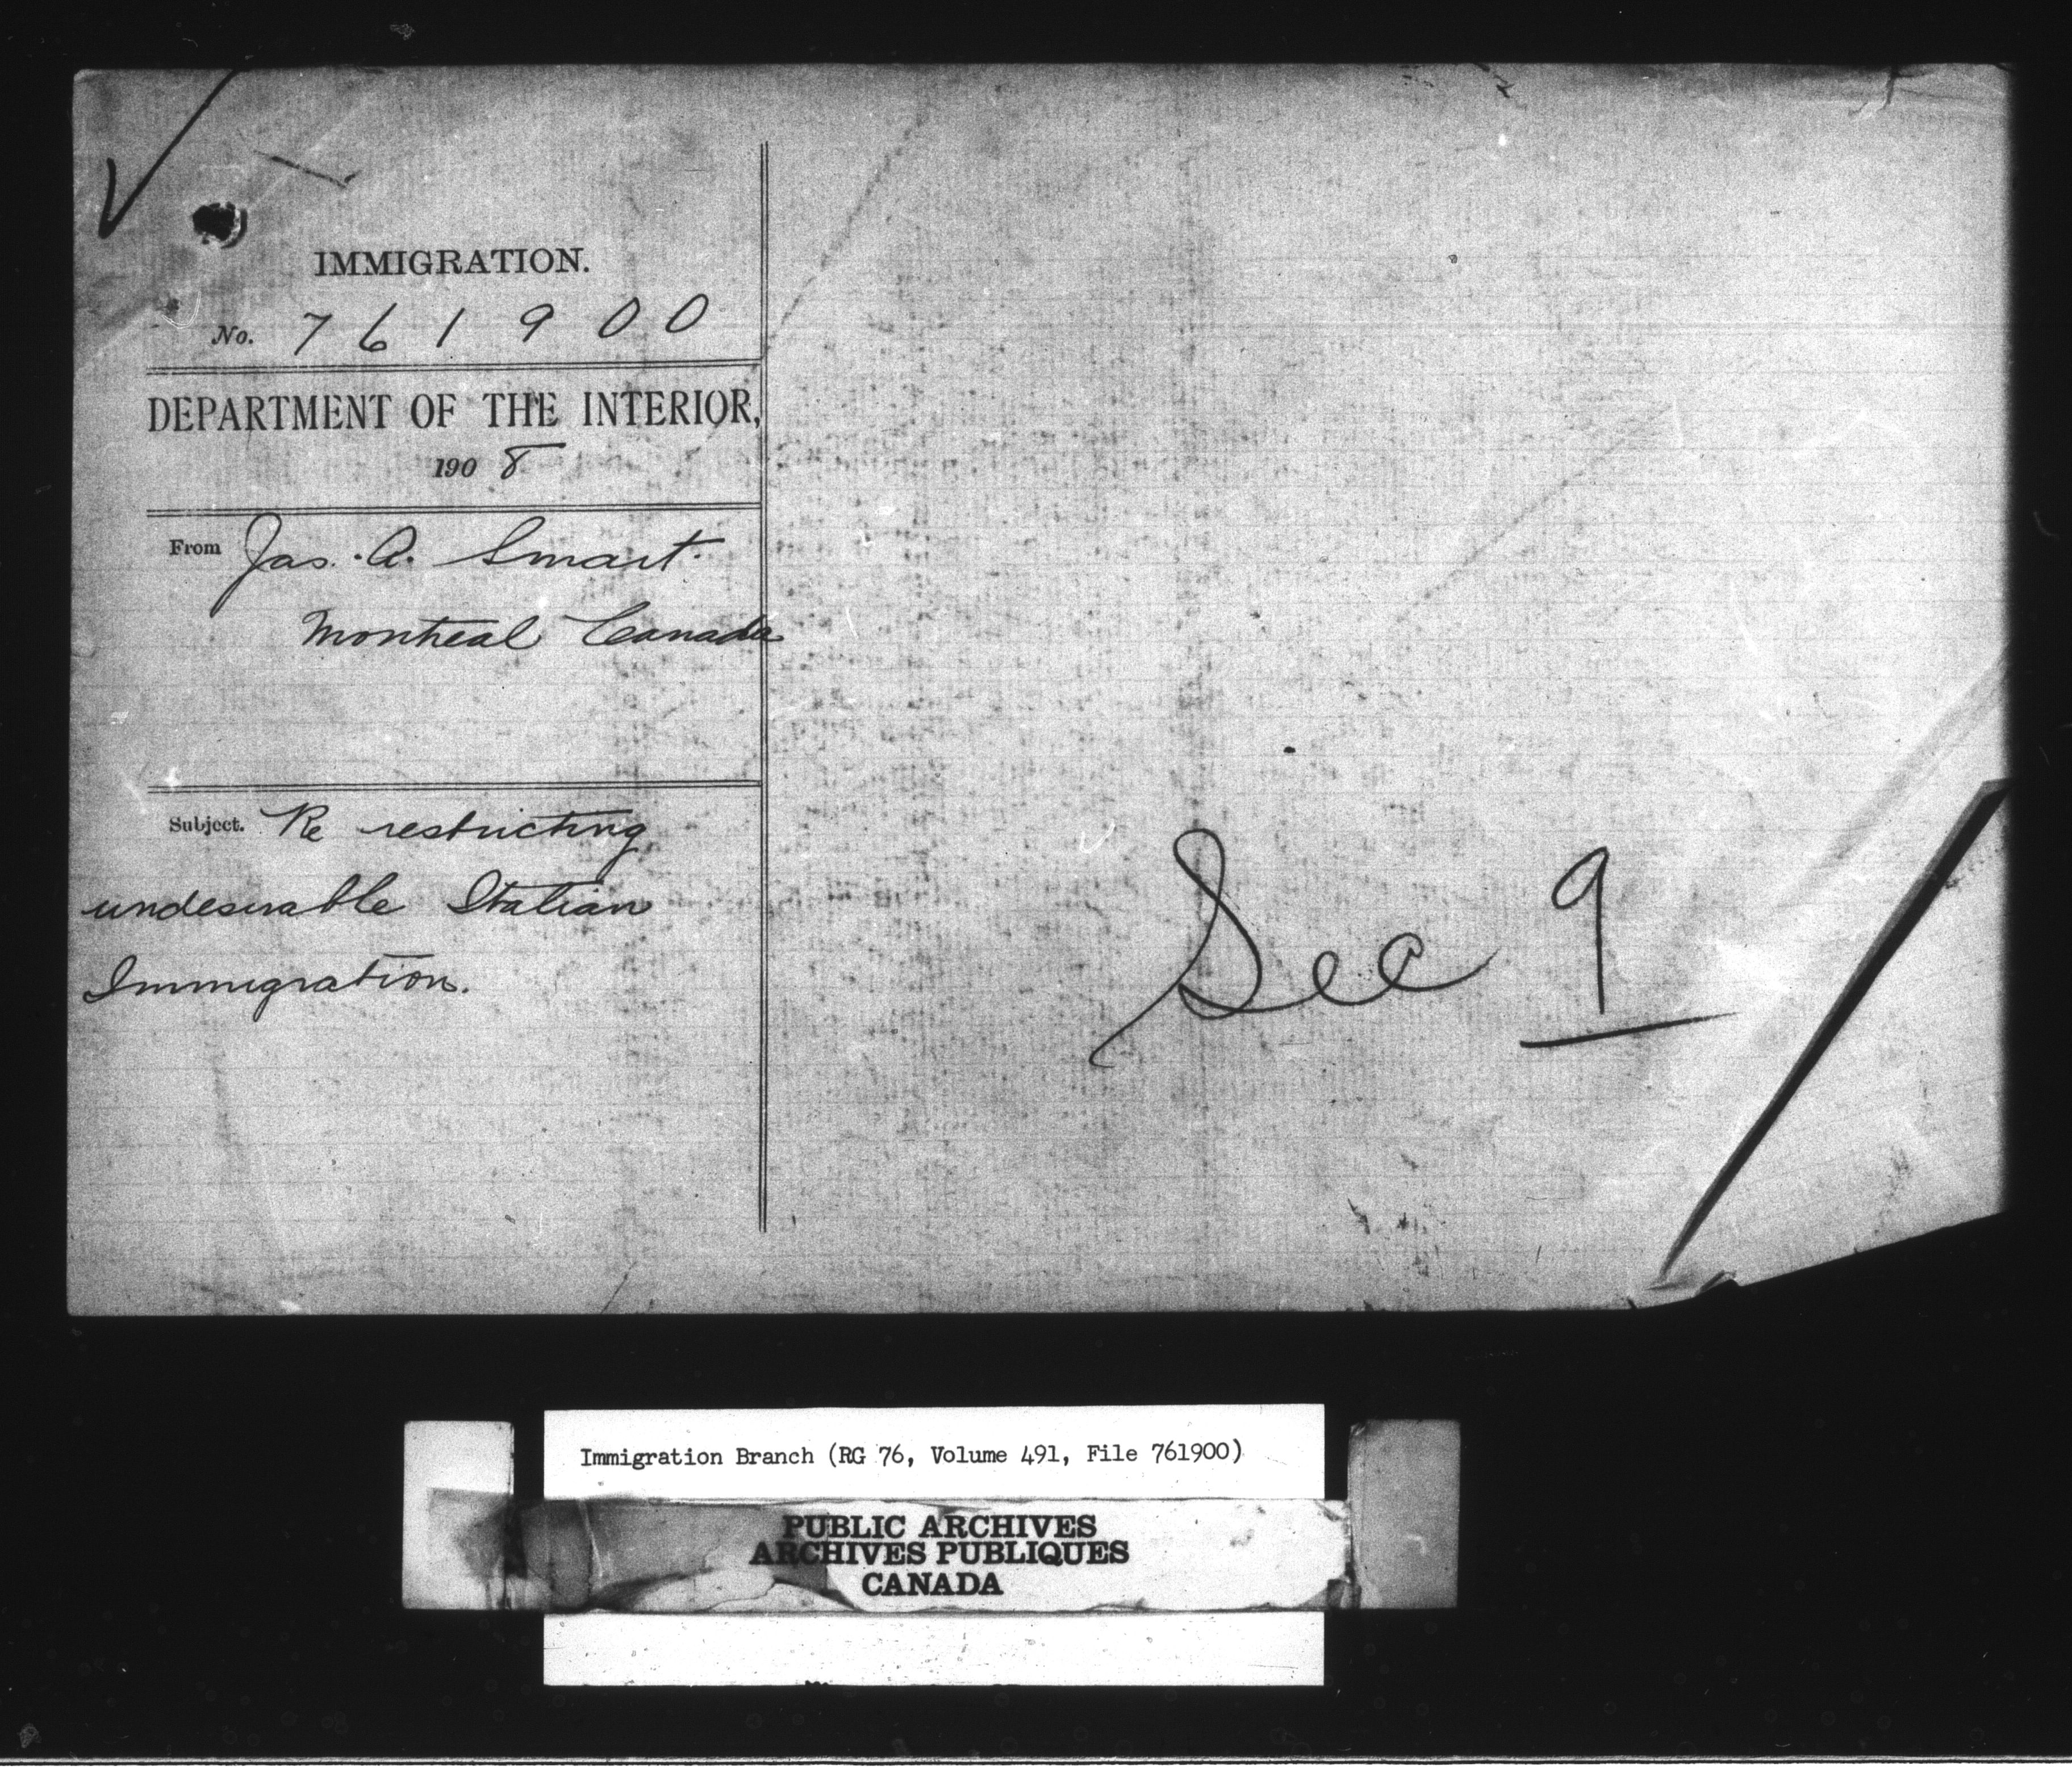 IMMIGRATION.
No. 761900
DEPARTMENT OF THE INTERIOR,
1908
From Jas. A. Smart.
Montreal Canada
Subject. Re restricting
undesirable Italian
Immigration.
Sec 9
Immigration Branch (RG 76, Volume 491, File 761900)
PUBLIC ARCHIVES
ARCHIVES PUBLIQUES
CANADA